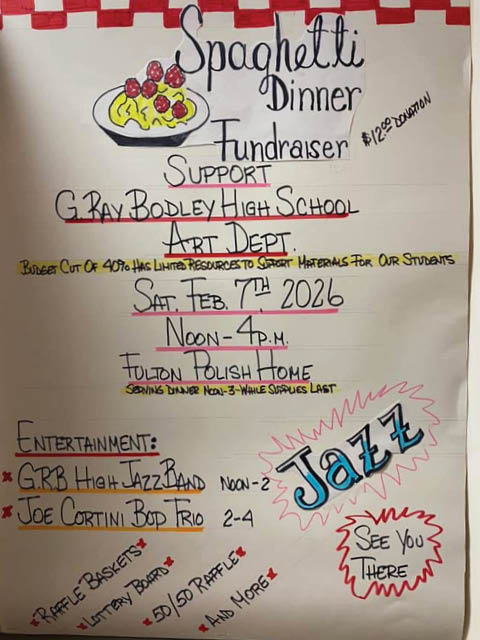 Spaghetti
Dinner
Fundraiser
$12.00 DONATION
SUPPORT
G. RAY BODLEY HIGH SCHOOL
ART DEPT.
BUDGET CUT OF 40% HAS LIMITED RESOURCES TO SUPPORT MATERIALS FOR OUR STUDENTS
SAT. FEB. 7TH, 2026
NOON-4P.M.
FULTON POLISH HOME
SERVING DINNER NOON-3-WHILE SUPPLIES LAST
ENTERTAINMENT:
GRB HIGH JAZZ BAND NOON-2
JOE CORTINI BOP TRIO 2-4
Jazz
SEE YOU
THERE
RAFFLE BASKETS
LOTTERY BOARD
50/50 RAFFLE
AND MORE